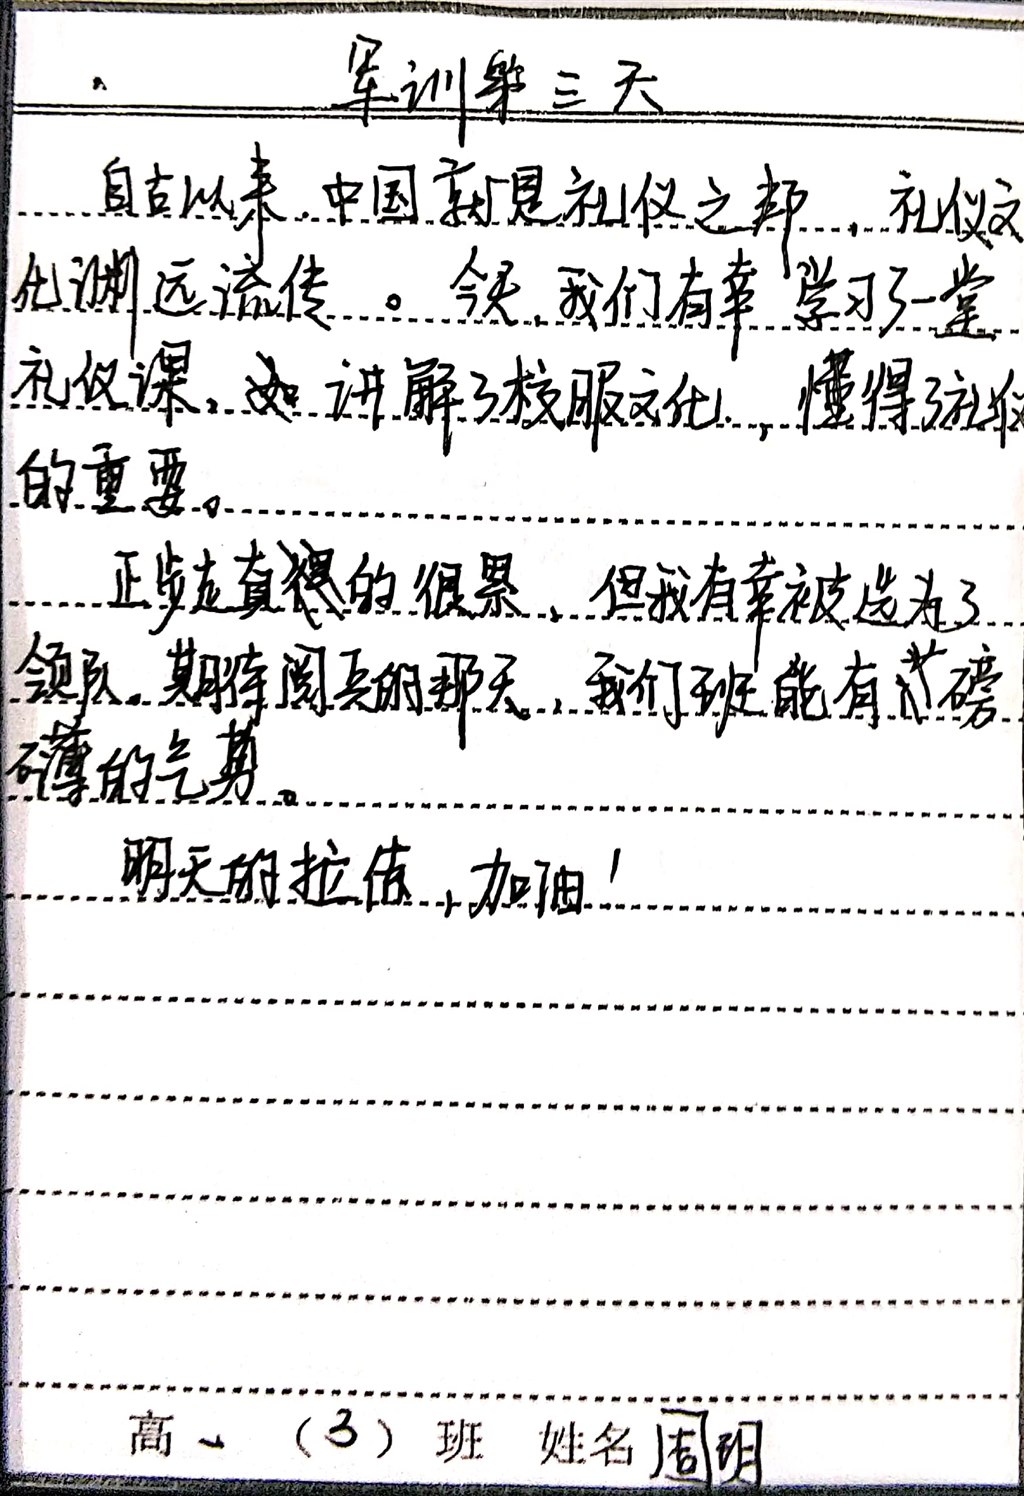 军训第三天
自古以来,中国就是礼仪之邦,礼仪文
化渊远流传。今天,我们有幸学习了一堂
礼仪课,讲解了校服文化,懂得了礼仪
的重要。
正步走真的很累,但我有幸被选为了
领队。期待阅兵的那天,我们班能有磅
礴的气势。
明天的拉练,加油!
高一(3)班 姓名周玥